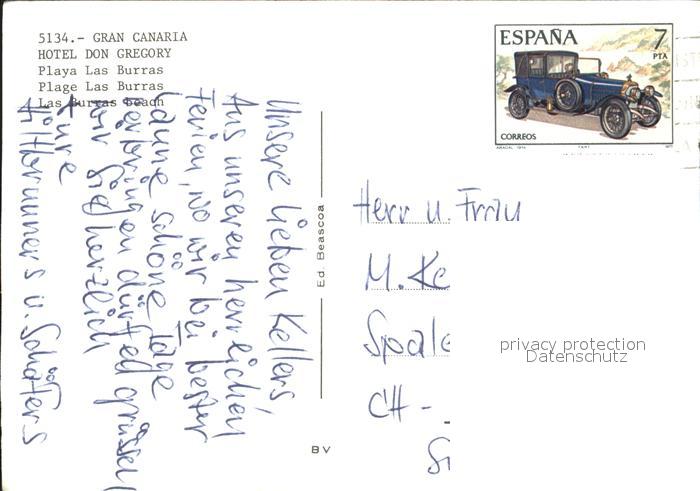 5134.- GRAN CANARIA
HOTEL DON GREGORY
Playa Las Burras
Plage Las Burras
Las Burras beach
ESPAÑA
7
PTA
CORREOS
Unsere lieben Kellers,
Aus unseren herrlichen
Ferien, wo wir bei bester
Laune schöne Tage
verbringen dürfen grüssen
wir Sie herzlich
Eure
Hiltbrunners u. Schäfers
Ed. Beascoa
BV
Herr u. Frau
M. Ke
Spale
CH -
privacy protection
Datenschutz